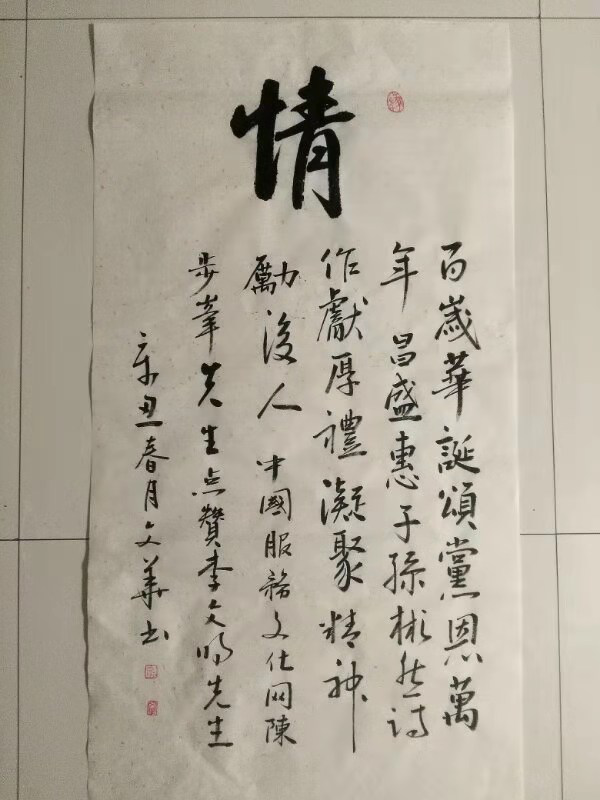 情
百歲華誕頌黨恩萬
年昌盛惠子孫彬然詩
作獻厚禮凝聚精神
勵後人中國服務文化网陳
步峯先生点贊李文明先生
辛丑春月文華书